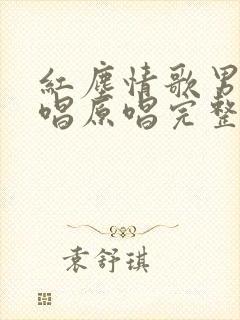 红尘情歌男
唱原唱完整
袁舒琪